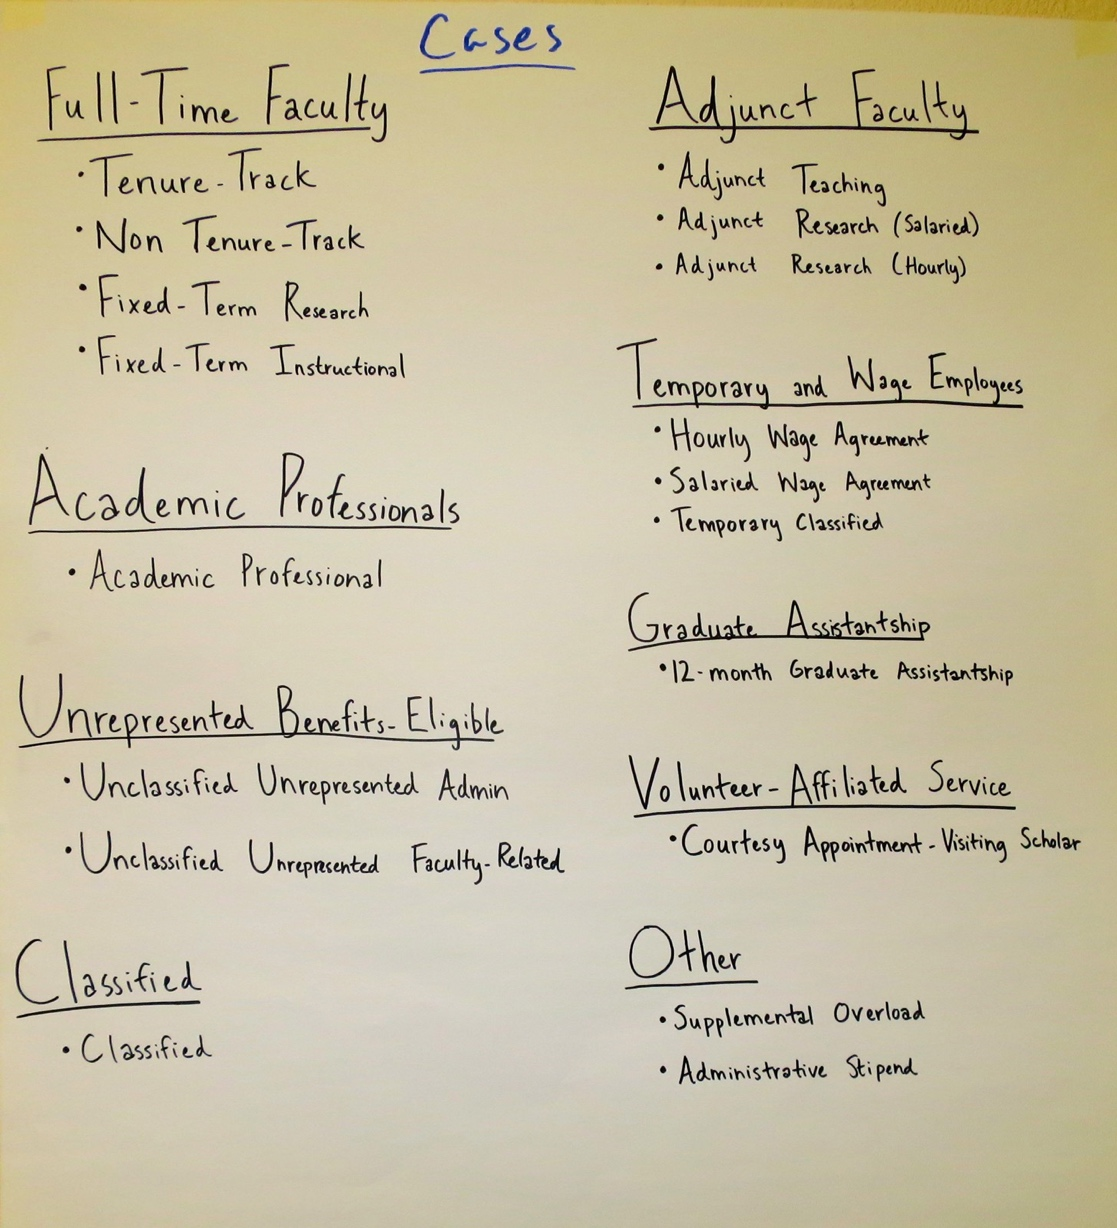 Cases
Full-Time Faculty
• Tenure-Track
• Non Tenure-Track
• Fixed-Term Research
• Fixed-Term Instructional
Academic Professionals
• Academic Professional
Unrepresented Benefits-Eligible
• Unclassified Unrepresented Admin
• Unclassified Unrepresented Faculty-Related
Classified
• Classified
Adjunct Faculty
• Adjunct Teaching
• Adjunct Research (Salaried)
• Adjunct Research (Hourly)
Temporary and Wage Employees
• Hourly Wage Agreement
• Salaried Wage Agreement
• Temporary Classified
Graduate Assistantship
• 12-month Graduate Assistantship
Volunteer-Affiliated Service
• Courtesy Appointment-Visiting Scholar
Other
• Supplemental Overload
• Administrative Stipend